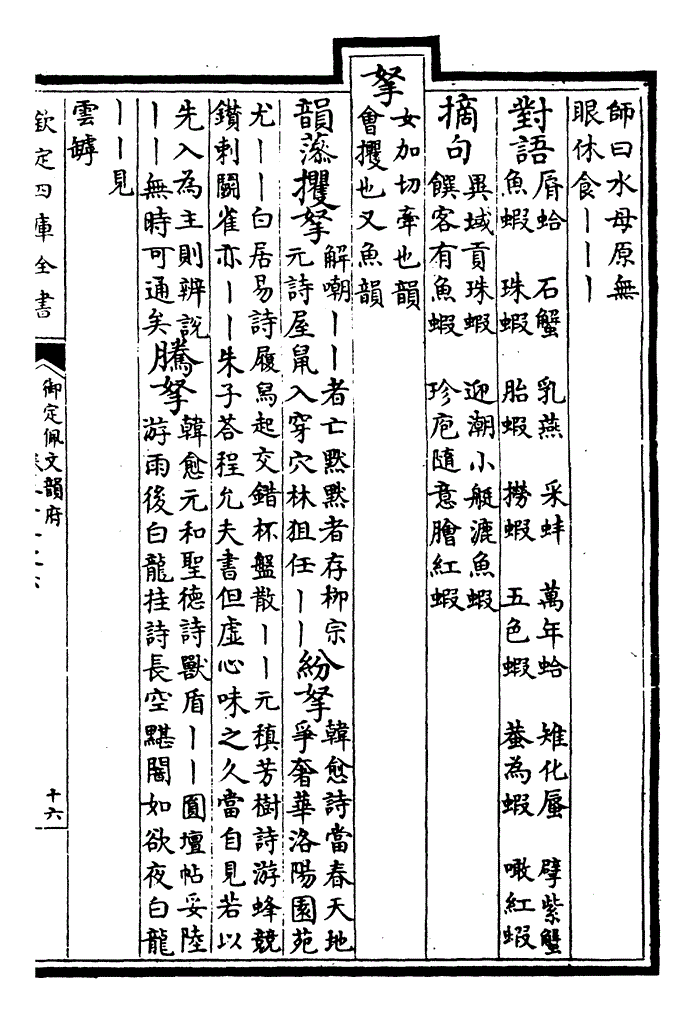 師曰水母原無
眼休食丨丨丨
對語
脣蛤 石蟹 乳燕 采蚌 萬年蛤 雉化蜃 擘紫蟹
魚蝦 珠蝦 胎蝦 撈蝦 五色蝦 蚕為蝦 噉紅蝦
摘句
異域貢珠蝦 迎潮小艇漉魚蝦
饌客有魚蝦 珍庖隨意膾紅蝦
拏
女加切牽也韻
會攫也又魚韻
韻藻攫拏
解嘲丨丨者亡黙黙者存柳宗
元詩屋䑕入穿穴林狙任丨丨
紛拏
韓愈詩當春天地
爭奢華洛陽園苑
尤丨丨白居易詩履舄起交錯杯盤散丨丨元稹芳樹詩游蜂競
鑚刺闘雀亦丨丨朱子荅程允夫書但虚心味之久當自見若以
先入為主則辨說
丨丨無時可通矣
騰拏
韓愈元和聖德詩獸盾丨丨圓壇帖妥陸
游雨後白龍挂詩長空黮闇如欲夜白龍
丨丨見
雲罅
欽定四庫全書
御定佩文韻府
十六